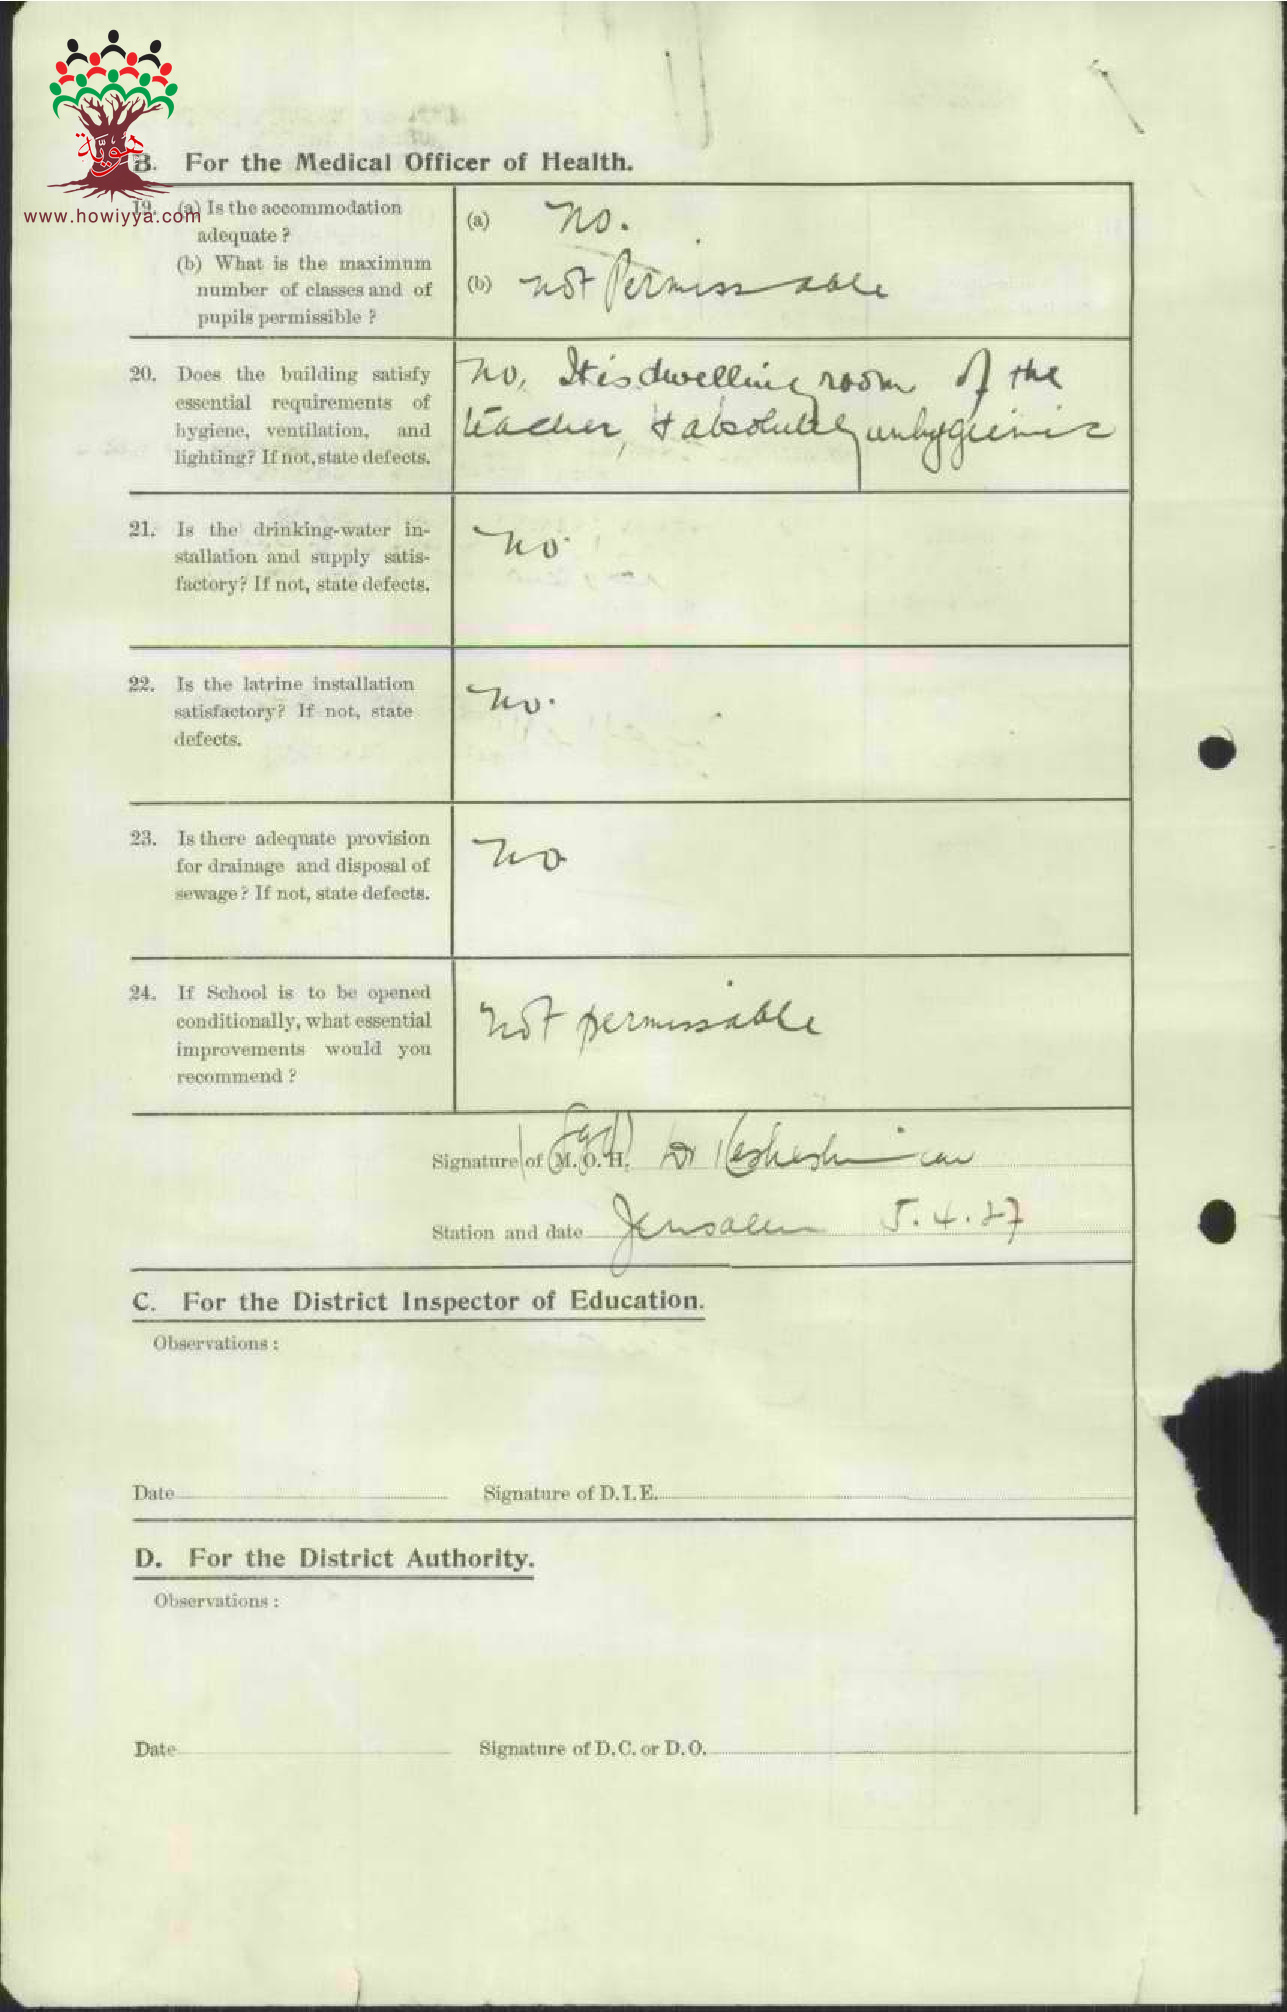 هويّة
www.howiyya.com
B. For the Medical Officer of Health.
19. (a) Is the accommodation
adequate ?
(b) What is the maximum
number of classes and of
pupils permissible ?
(a) No.
(b) not Permissable
20. Does the building satisfy
essential requirements of
hygiene, ventilation, and
lighting? If not, state defects.
No, It is dwelling room of the
teacher, & absolutely unhygienic
21. Is the drinking-water in-
stallation and supply satis-
factory? If not, state defects.
No.
22. Is the latrine installation
satisfactory? If not, state
defects.
No.
23. Is there adequate provision
for drainage and disposal of
sewage ? If not, state defects.
No
24. If School is to be opened
conditionally, what essential
improvements would you
recommend ?
not permissable
Signature of M.O.H. (Sgd) Dr Kesheshian
Station and date Jerusalem 5.4.27
C. For the District Inspector of Education.
Observations :
Date Signature of D.I.E.
D. For the District Authority.
Observations :
Date Signature of D.C. or D.O.